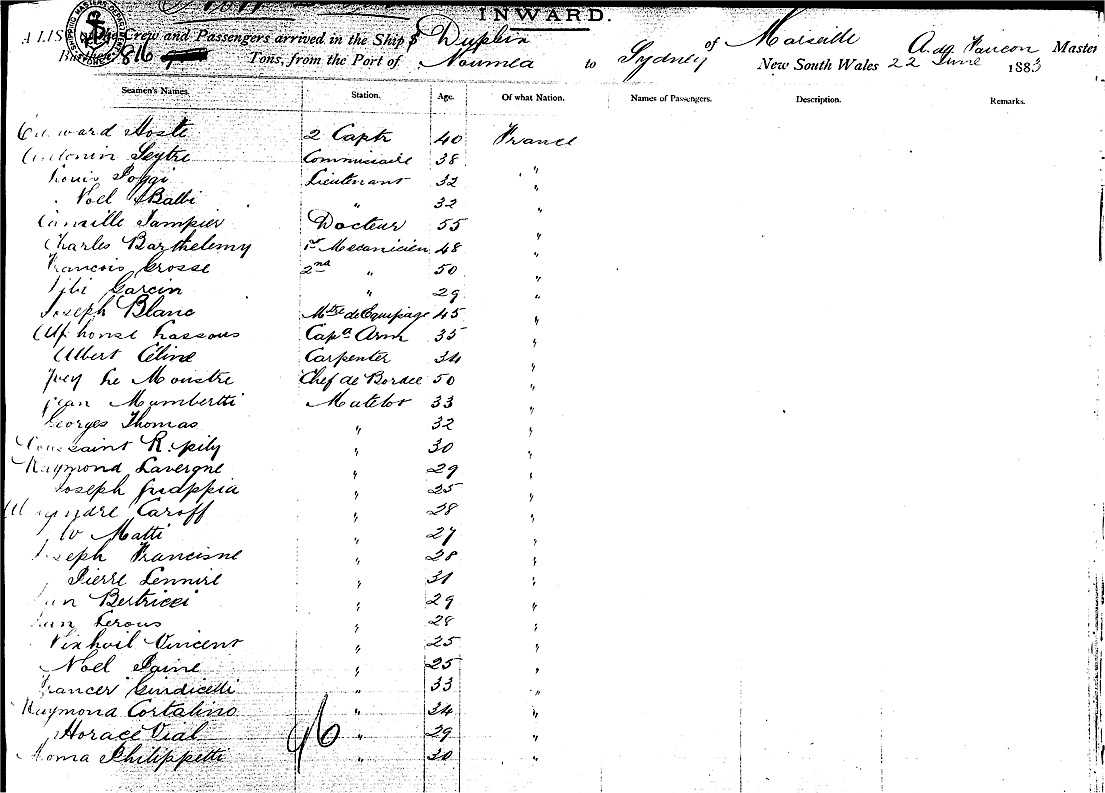 INWARD.
A LIST of the Crew and Passengers arrived in the Ship Duplin of Marseille A. de Faucon Master
816 Tons, from the Port of Noumea to Sydney New South Wales 22 June 1883
Seamen's Names. Station. Age. Of what Nation. Names of Passengers. Description. Remarks.
Hoste 2 Captn 40 France
Antonin Seytre Commissaire 38 "
Louis Poggi Lieutenant 32 "
Noel Balbi " 32 "
Camille Sampier Docteur 55 "
Charles Barthelemy 1er Mecanicien 48 "
Francois Crosse 2nd " 50 "
Garcin " 29 "
Joseph Blanc Mtre de Equipage 45 "
Alphonse Lassous Capn Arm 35 "
Albert Céline Carpenter 34 "
Le Moustre Chef de Bordee 50 "
Jean Mambertti Matelot 33 "
Georges Thomas " 32 "
Toussaint " 30 "
Raymond Lavergne " 29 "
Joseph Grappia " 25 "
Caroff " 28 "
Matti " 27 "
Joseph Francisne " 28 "
Pierre Lennire " 31 "
Bertricci " 29 "
Lerous " 28 "
Vincent " 25 "
Noel Paine " 25 "
Giudicelli " 33 "
Raymond Cortalino " 34 "
Horace Vial " 29 "
Philippetti " 30 "
96